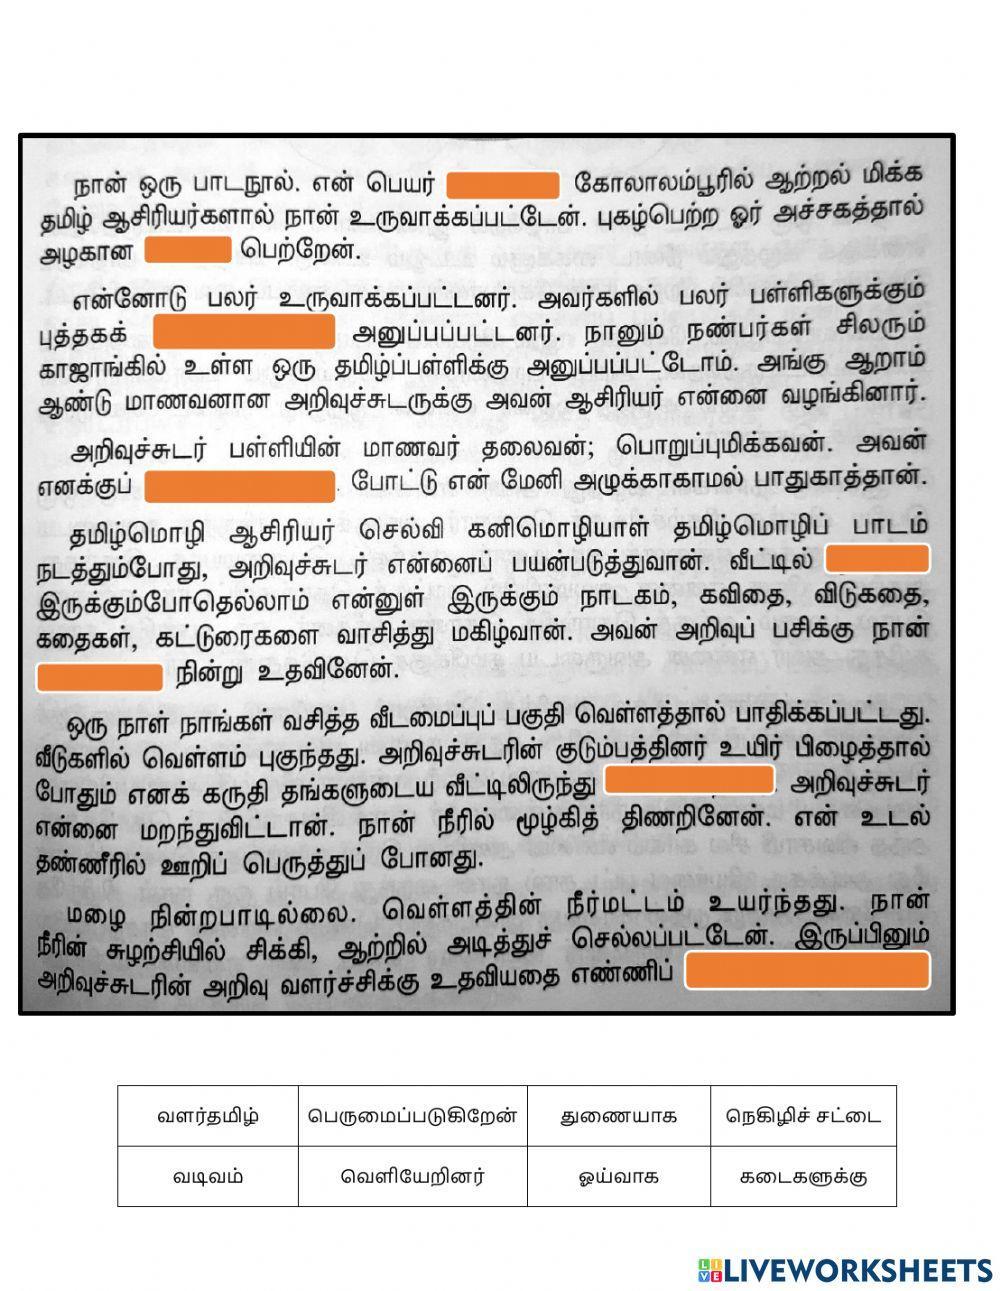 நான் ஒரு பாடநூல். என் பெயர் கோலாலம்பூரில் ஆற்றல் மிக்க
தமிழ் ஆசிரியர்களால் நான் உருவாக்கப்பட்டேன். புகழ்பெற்ற ஓர் அச்சகத்தால்
அழகான பெற்றேன்.
என்னோடு பலர் உருவாக்கப்பட்டனர். அவர்களில் பலர் பள்ளிகளுக்கும்
புத்தகக் அனுப்பப்பட்டனர். நானும் நண்பர்கள் சிலரும்
காஜாங்கில் உள்ள ஒரு தமிழ்ப்பள்ளிக்கு அனுப்பப்பட்டோம். அங்கு ஆறாம்
ஆண்டு மாணவனான அறிவுச்சுடருக்கு அவன் ஆசிரியர் என்னை வழங்கினார்.
அறிவுச்சுடர் பள்ளியின் மாணவர் தலைவன்; பொறுப்புமிக்கவன். அவன்
எனக்குப் . போட்டு என் மேனி அழுக்காகாமல் பாதுகாத்தான்.
தமிழ்மொழி ஆசிரியர் செல்வி கனிமொழியாள் தமிழ்மொழிப் பாடம்
நடத்தும்போது, அறிவுச்சுடர் என்னைப் பயன்படுத்துவான். வீட்டில்
இருக்கும்போதெல்லாம் என்னுள் இருக்கும் நாடகம், கவிதை, விடுகதை,
கதைகள், கட்டுரைகளை வாசித்து மகிழ்வான். அவன் அறிவுப் பசிக்கு நான்
நின்று உதவினேன்.
ஒரு நாள் நாங்கள் வசித்த வீடமைப்புப் பகுதி வெள்ளத்தால் பாதிக்கப்பட்டது.
வீடுகளில் வெள்ளம் புகுந்தது. அறிவுச்சுடரின் குடும்பத்தினர் உயிர் பிழைத்தால்
போதும் எனக் கருதி தங்களுடைய வீட்டிலிருந்து . அறிவுச்சுடர்
என்னை மறந்துவிட்டான். நான் நீரில் மூழ்கித் திணறினேன். என் உடல்
தண்ணீரில் ஊறிப் பெருத்துப் போனது.
மழை நின்றபாடில்லை. வெள்ளத்தின் நீர்மட்டம் உயர்ந்தது. நான்
நீரின் சுழற்சியில் சிக்கி, ஆற்றில் அடித்துச் செல்லப்பட்டேன். இருப்பினும்
அறிவுச்சுடரின் அறிவு வளர்ச்சிக்கு உதவியதை எண்ணிப்
வளர்தமிழ் பெருமைப்படுகிறேன் துணையாக நெகிழிச் சட்டை
வடிவம் வெளியேறினர் ஓய்வாக கடைகளுக்கு
LIVE LIVEWORKSHEETS